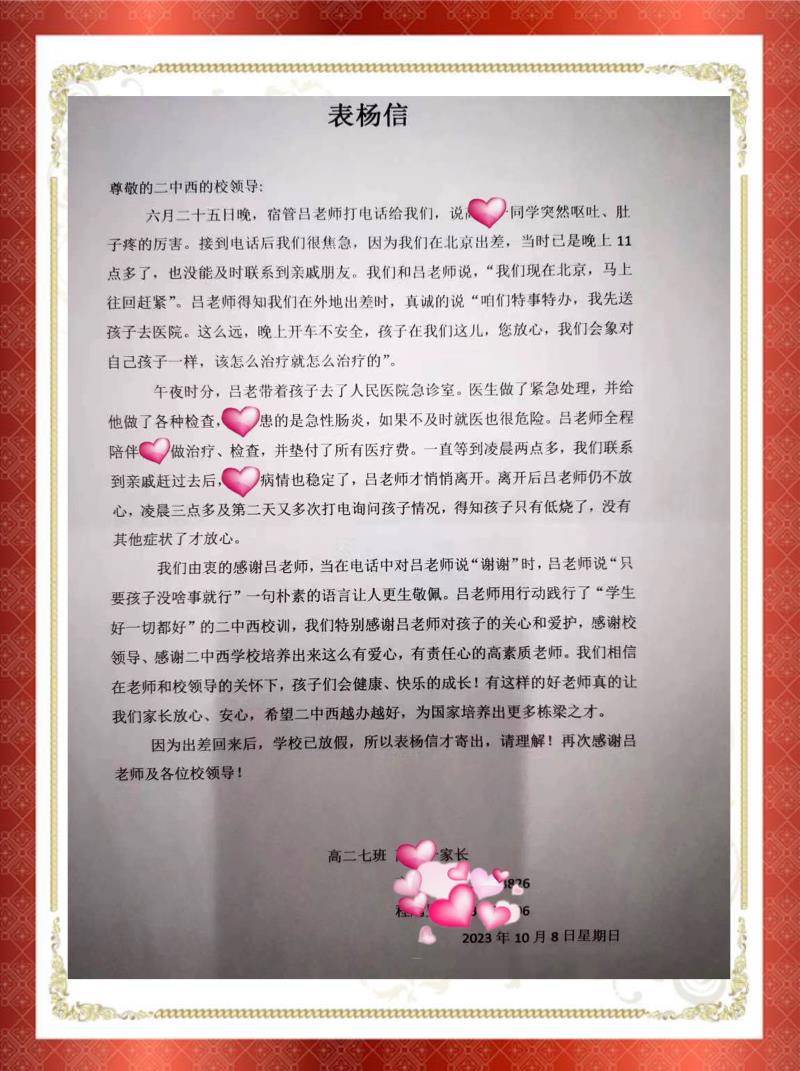 表杨信
尊敬的二中西的校领导:
六月二十五日晚，宿管吕老师打电话给我们，说 同学突然呕吐、肚
子疼的厉害。接到电话后我们很焦急，因为我们在北京出差，当时已是晚上 11
点多了，也没能及时联系到亲戚朋友。我们和吕老师说，“我们现在北京，马上
往回赶紧”。吕老师得知我们在外地出差时，真诚的说“咱们特事特办，我先送
孩子去医院。这么远，晚上开车不安全，孩子在我们这儿，您放心，我们会象对
自己孩子一样，该怎么治疗就怎么治疗的”。
午夜时分，吕老带着孩子去了人民医院急诊室。医生做了紧急处理，并给
他做了各种检查， 患的是急性肠炎，如果不及时就医也很危险。吕老师全程
陪伴 做治疗、检查，并垫付了所有医疗费。一直等到凌晨两点多，我们联系
到亲戚赶过去后， 病情也稳定了，吕老师才悄悄离开。离开后吕老师仍不放
心，凌晨三点多及第二天又多次打电询问孩子情况，得知孩子只有低烧了，没有
其他症状了才放心。
我们由衷的感谢吕老师，当在电话中对吕老师说“谢谢”时，吕老师说“只
要孩子没啥事就行”一句朴素的语言让人更生敬佩。吕老师用行动践行了“学生
好一切都好”的二中西校训，我们特别感谢吕老师对孩子的关心和爱护，感谢校
领导、感谢二中西学校培养出来这么有爱心，有责任心的高素质老师。我们相信
在老师和校领导的关怀下，孩子们会健康、快乐的成长！有这样的好老师真的让
我们家长放心、安心，希望二中西越办越好，为国家培养出更多栋梁之才。
因为出差回来后，学校已放假，所以表杨信才寄出，请理解！再次感谢吕
老师及各位校领导！
高二七班 家长
8826
06
2023 年 10 月 8 日星期日